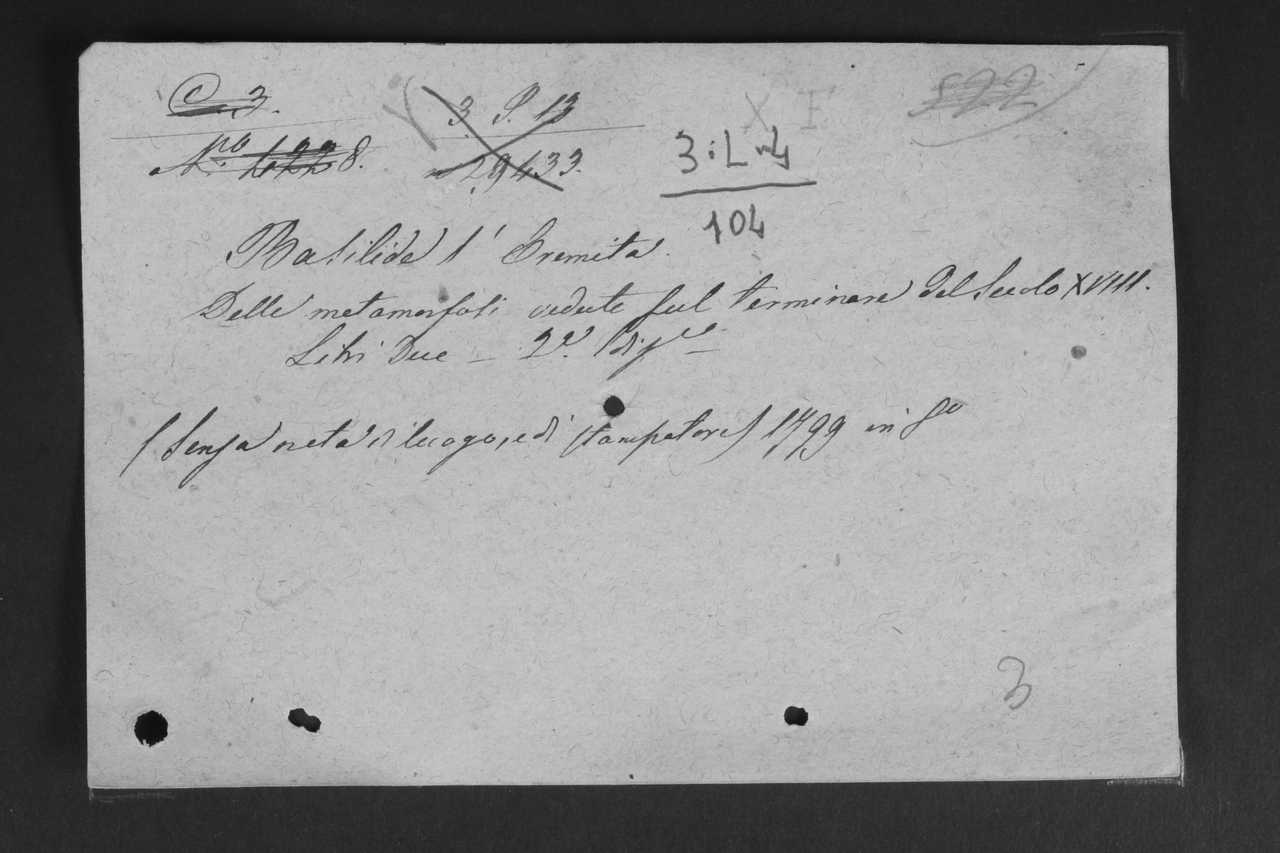 C 3.
3 P. 13
X F
522
N.ro 6228.
29433.
3:L-4
104
Basilide l' Eremita.
Delle metamorfosi vedute sul terminare del Secolo XVIII.
Libri Due –
(Senza nota di luogo, e di stampatore) 1799 in 8o
3